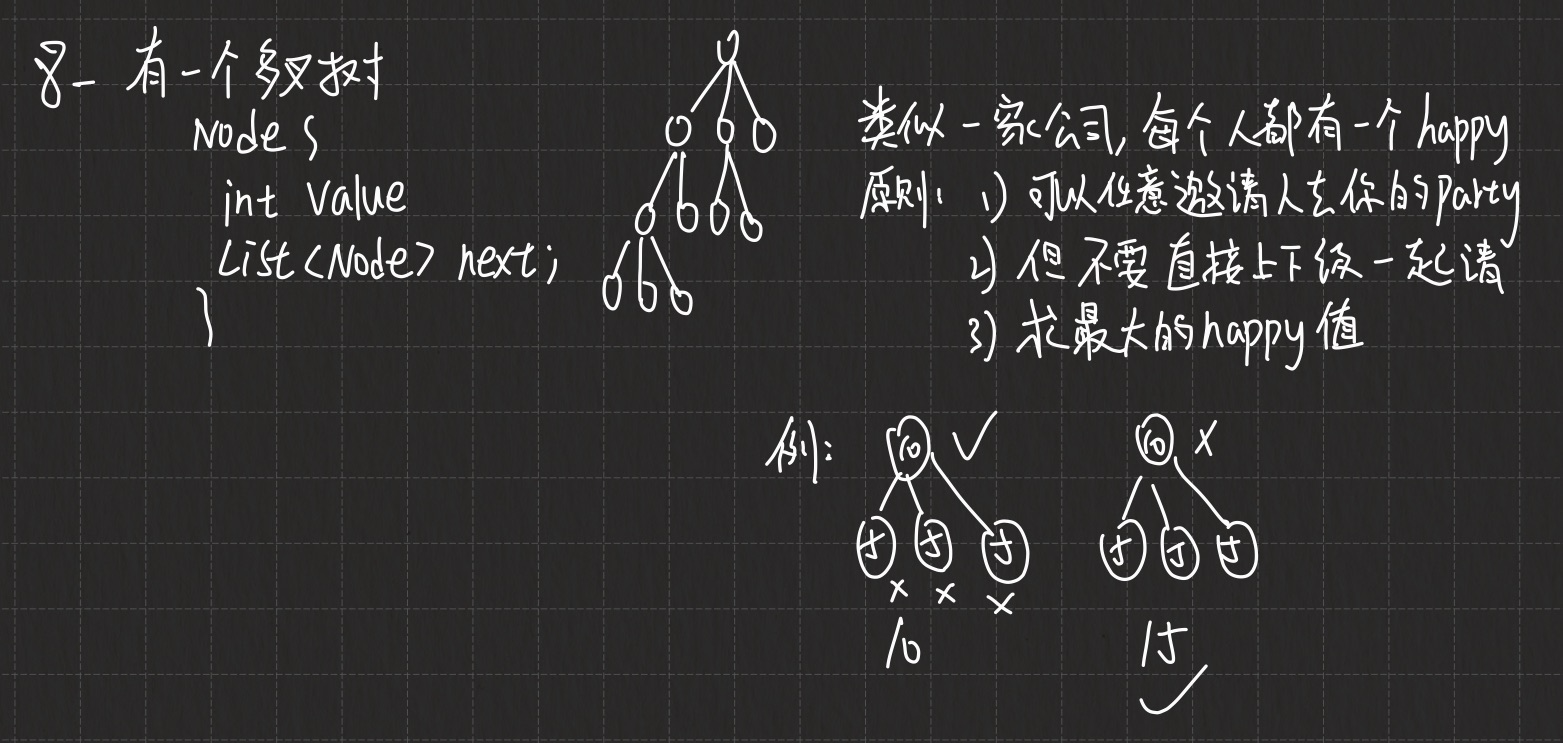 8_ 有一个多叉树
Node {
int value
List<Node> next;
}
类似一家公司, 每个人都有一个happy
原则: 1) 可以任意邀请人去你的party
2) 但不要直接上下级一起请
3) 求最大的happy值
例: 10 ✓ 10 ×
5 5 5 5 5 5
× × ×
10 15
✓